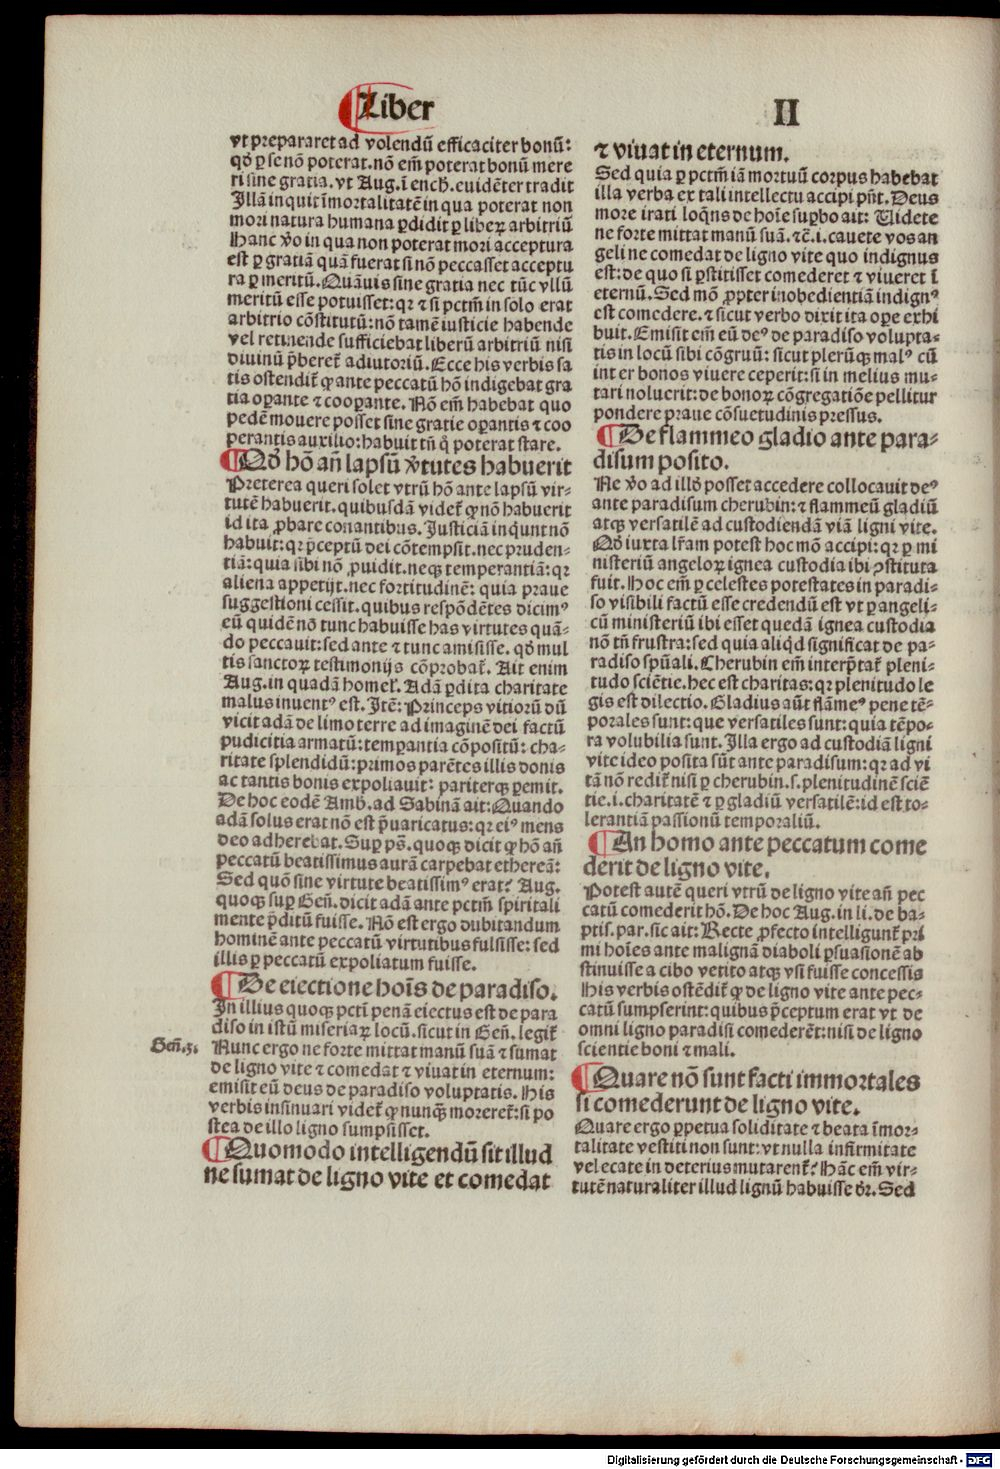 Liber II
vt prepararet ad volendū efficaciter bonū:
qd̄ ꝑ se nō poterat. nō em̄ poterat bonū mere
ri sine gratia. vt Aug. ī ench. euidēter tradit
Illā inquit īmortalitatē in qua poterat non
mori natura humana ꝑdidit ꝑ liberꝝ arbitriū
Hanc ꝟo in qua non poterat mori acceptura
est ꝑ gratiā quā fuerat si nō peccasset acceptu
ra ꝑ meritū. Quāuis sine gratia nec tūc vllū
meritū esse potuisset: qꝛ ⁊ si pctm̄ in solo erat
arbitrio cōstitutū: nō tamē iusticie habende
vel retinende sufficiebat liberū arbitriū nisi
diuinū p̄beret᷑ adiutoriū. Ecce his verbis sa
tis ostendit᷑ ꝙ ante peccatū hō indigebat gra
tia oꝑante ⁊ cooꝑante. Nō em̄ habebat quo
pedē mouere posset sine gratie oꝑantis ⁊ coo
perantis auxilio: habuit tn̄ q̄ poterat stare.
¶ Qd̄ hō an̄ lapsū ꝟtutes habuerit
Preterea queri solet vtrū hō ante lapsū vir-
tutē habuerit. quibusdā videt᷑ ꝙ nō habuerit
id ita ꝓbare conantibus. Justiciā inqunt nō
habuit: qꝛ p̄ceptū dei cōtempsit. nec pruden-
tiā: quia sibi nō ꝓuidit. neqꝫ temperantiā: qꝛ
aliena appetijt. nec fortitudinē: quia praue
suggestioni cessit. quibus respōdētes dicimꝰ
eū quidē nō tunc habuisse has virtutes quā-
do peccauit: sed ante ⁊ tunc amisisse. qd̄ mul
tis sanctoꝝ testimonijs cōprobat᷑. Ait enim
Aug. in quadā homel᷑. Adā ꝑdita charitate
malus inuentꝰ est. Itē: Princeps vitiorū dū
vicit adā de limo terre ad imaginē dei factū
pudicitia armatū: temꝑantia cōpositū: cha-
ritate splendidū: primos parētes illis donis
ac tantis bonis expoliauit: pariterqꝫ ꝑemit.
De hoc eodē Amb. ad Sabinā ait: Quando
adā solus erat nō est p̄uaricatus: qꝛ eiꝰ mens
deo adherebat. Suꝑ ps̄. quoqꝫ dicit ꝙ hō an̄
peccatū beatissimus aurā carpebat ethereā:
Sed quō sine virtute beatissimꝰ erat? Aug.
quoqꝫ suꝑ Gen̄. dicit adā ante pctm̄ spiritali
mente p̄ditū fuisse. Nō est ergo dubitandum
hominē ante peccatū virtutibus fulsisse: sed
illis ꝑ peccatū expoliatum fuisse.
¶ De eiectione hoīs de paradiso.
In illius quoqꝫ pctī penā eiectus est de para
diso in istū miseriaꝝ locū. sicut in Gen̄. legit᷑
Gen̄.3.
Nunc ergo ne forte mittat manū suā ⁊ sumat
de ligno vite ⁊ comedat ⁊ viuat in eternum:
emisit eū deus de paradiso voluptatis. His
verbis insinuari videt᷑ ꝙ nunqꝫ moreret᷑: si po
stea de illo ligno sumpsisset.
¶ Quomodo intelligendū sit illud
ne sumat de ligno vite et comedat
⁊ viuat in eternum.
Sed quia ꝑ pctm̄ iā mortuū corpus habebat
illa verba ex tali intellectu accipi pn̄t. Deus
more irati loq̄ns de hoīe suꝑbo ait: Uidete
ne forte mittat manū suā. ⁊c̄. i. cauete vos an
geli ne comedat de ligno vite quo indignus
est: de quo si ꝑstitisset comederet ⁊ viueret ī
eternū. Sed mō ꝓpter inobedientiā indignꝰ
est comedere. ⁊ sicut verbo dixit ita oꝑe exhi
buit. Emisit em̄ eū deꝰ de paradiso volupta-
tis in locū sibi cōgruū: sicut plerūqꝫ malꝰ cū
inter bonos viuere ceperit: si in melius mu-
tari noluerit: de bonoꝝ cōgregatiōe pellitur
pondere praue cōsuetudinis pressus.
¶ De flammeo gladio ante para-
disum posito.
Ne ꝟo ad illd̄ posset accedere collocauit deꝰ
ante paradisum cherubin: ⁊ flammeū gladiū
atqꝫ versatilē ad custodiendā viā ligni vite.
Qd̄ iuxta lr̄am potest hoc mō accipi: qꝛ ꝑ mi
nisteriū angeloꝝ ignea custodia ibi ꝯstituta
fuit. Hoc em̄ ꝑ celestes potestates in paradi-
so visibili factū esse credendū est vt ꝑ angeli-
cū ministeriū ibi esset quedā ignea custodia
nō tn̄ frustra: sed quia aliqd̄ significat de pa-
radiso spūali. Cherubin em̄ interp̄tat᷑ pleni-
tudo sciētie. hec est charitas: qꝛ plenitudo le
gis est dilectio. Gladius aūt flāmeꝰ pene tē-
porales sunt: que versatiles sunt: quia tēpo-
ra volubilia sunt. Illa ergo ad custodiā ligni
vite ideo posita sūt ante paradisum: qꝛ ad vi
tā nō redit᷑ nisi ꝑ cherubin. s. plenitudinē sciē
tie. i. charitatē ⁊ ꝑ gladiū versatilē: id est to-
lerantiā passionū temporaliū.
¶ An homo ante peccatum come
derit de ligno vite.
Potest autē queri vtrū de ligno vite an̄ pec
catū comederit hō. De hoc Aug. in li. de ba-
ptis. par. sic ait: Recte ꝓfecto intelligunt᷑ pri
mi hoīes ante malignā diaboli ꝑsuasionē ab
stinuisse a cibo vetito atqꝫ vsi fuisse concessis
His verbis ostēdit᷑ ꝙ de ligno vite ante pec-
catū sumpserint: quibus p̄ceptum erat vt de
omni ligno paradisi comederēt: nisi de ligno
scientie boni ⁊ mali.
¶ Quare nō sunt facti immortales
si comederunt de ligno vite.
Quare ergo ꝑpetua soliditate ⁊ beata īmor-
talitate vestiti non sunt: vt nulla infirmitate
vel ecate in deterius mutarent᷑? Hāc em̄ vir-
tutē naturaliter illud lignū habuisse dr̄. Sed
Digitalisierung gefördert durch die Deutsche Forschungsgemeinschaft - DFG